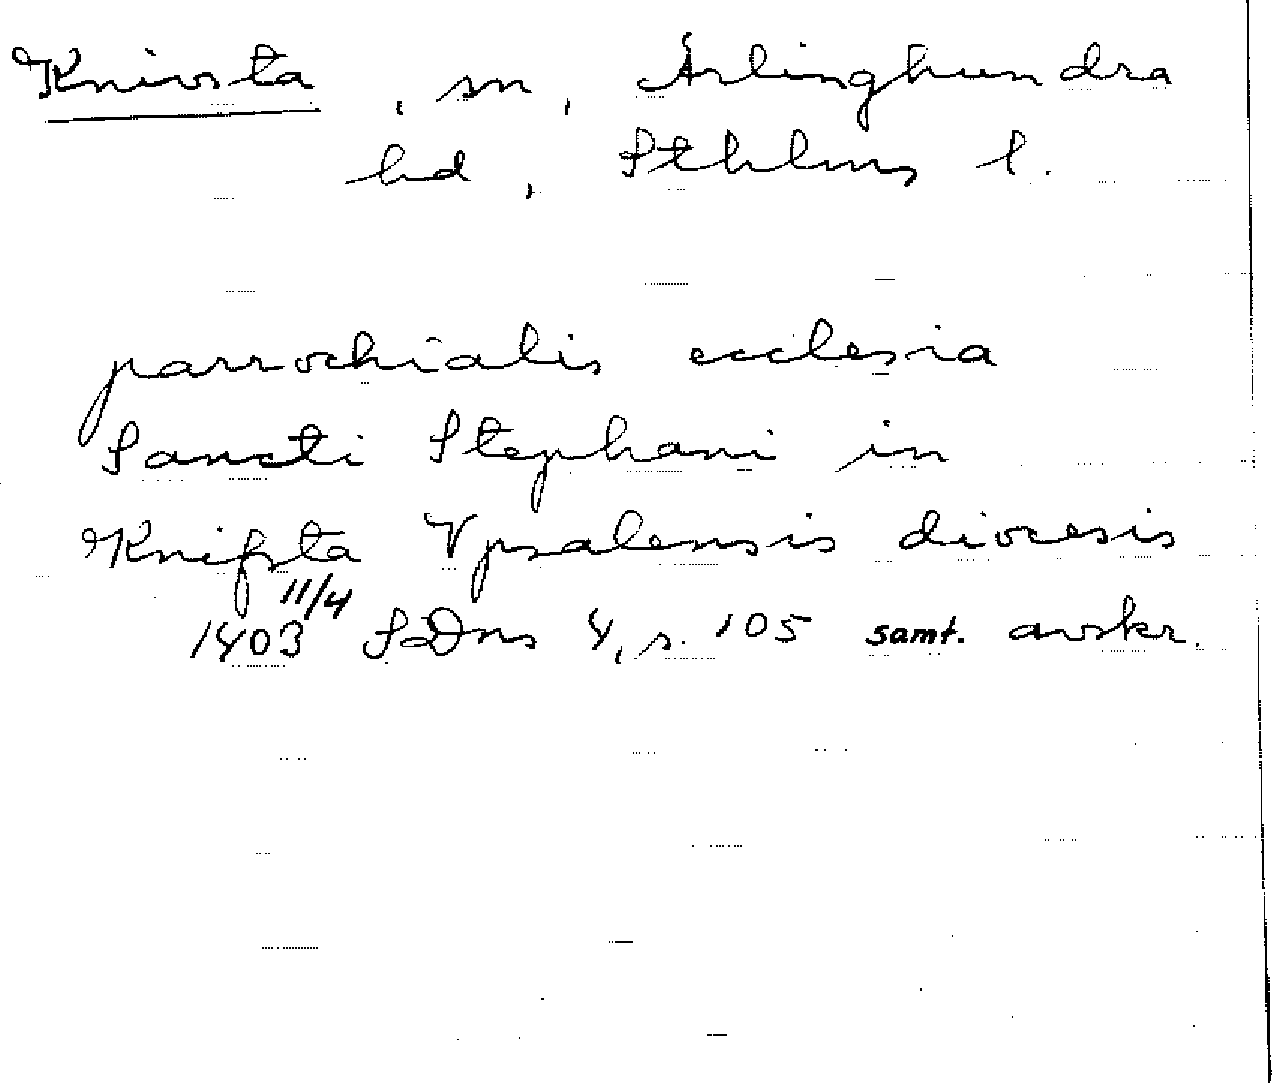 Knivsta, sn, Ärlinghundra
hd, Sthlms l.
parrochialis ecclesia
Sancti Stephani in
Knifsta Vpsalensis diocesis
1403 11/4 SDns 4, s. 105 samt. avskr.